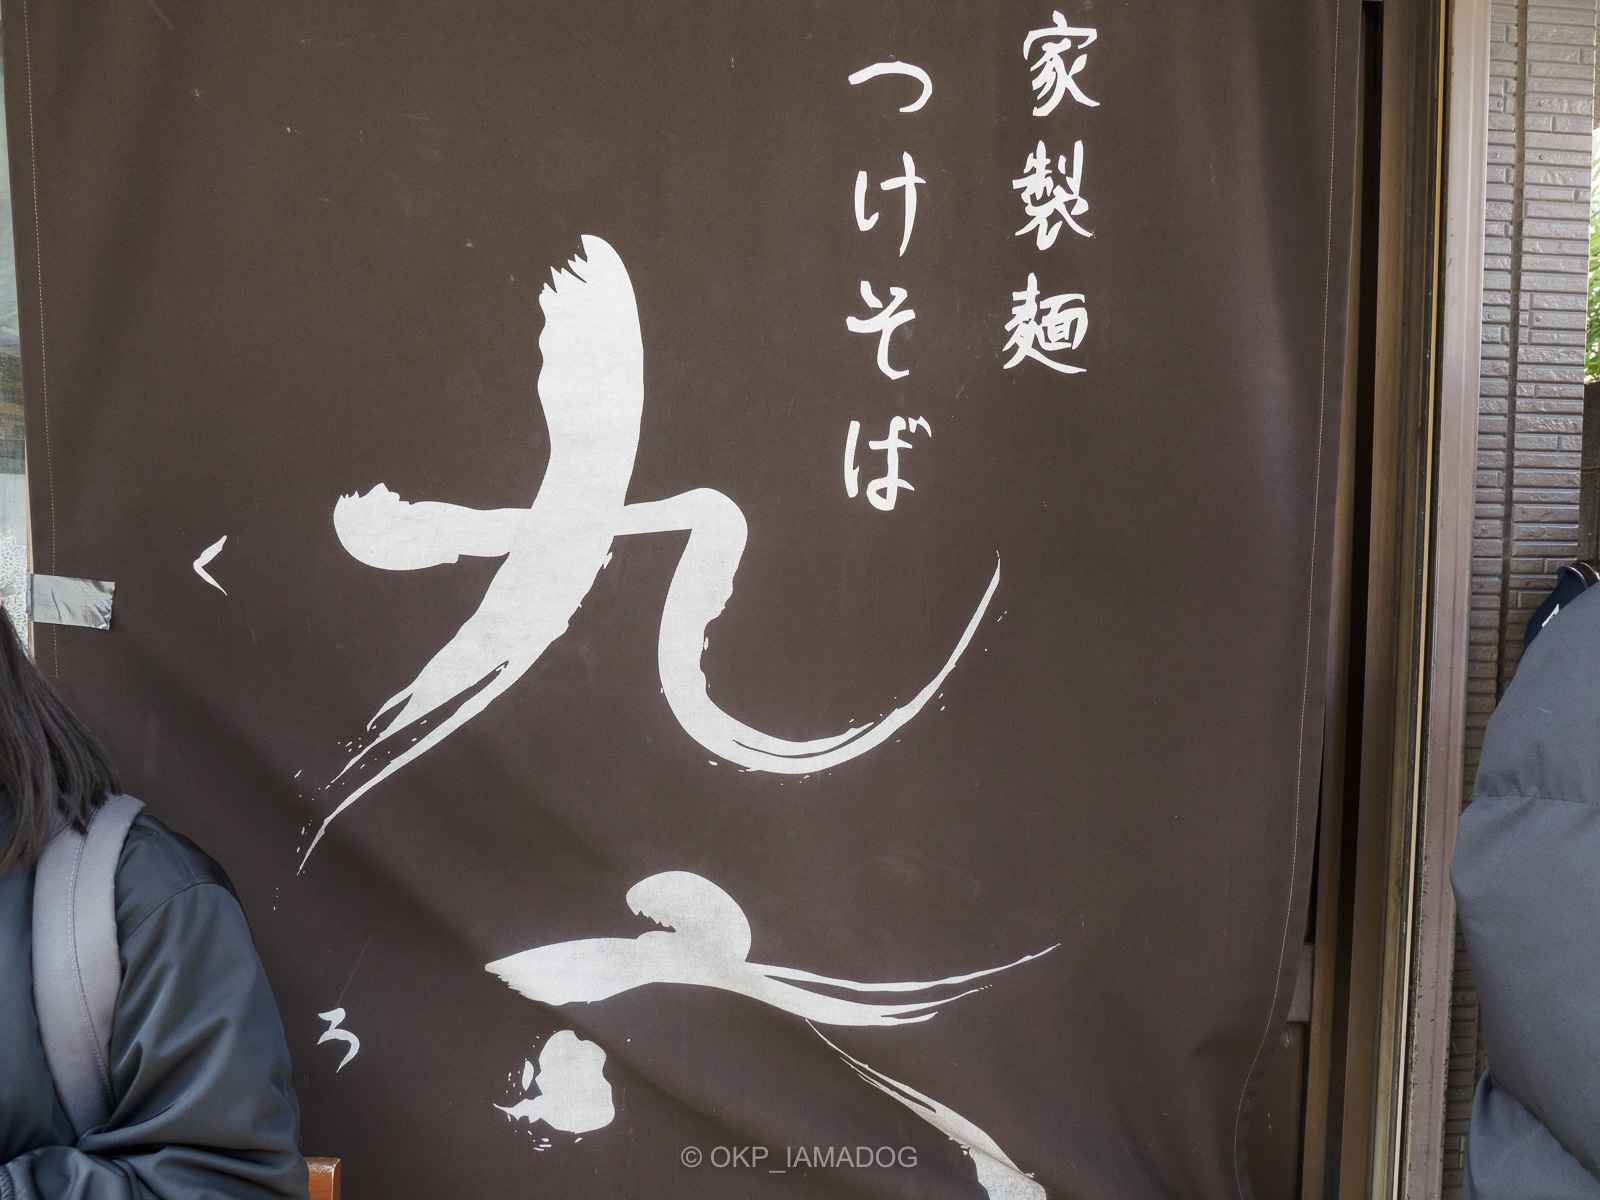 家製麺
つけそば
九六
く
ろ
© OKP_IAMADOG